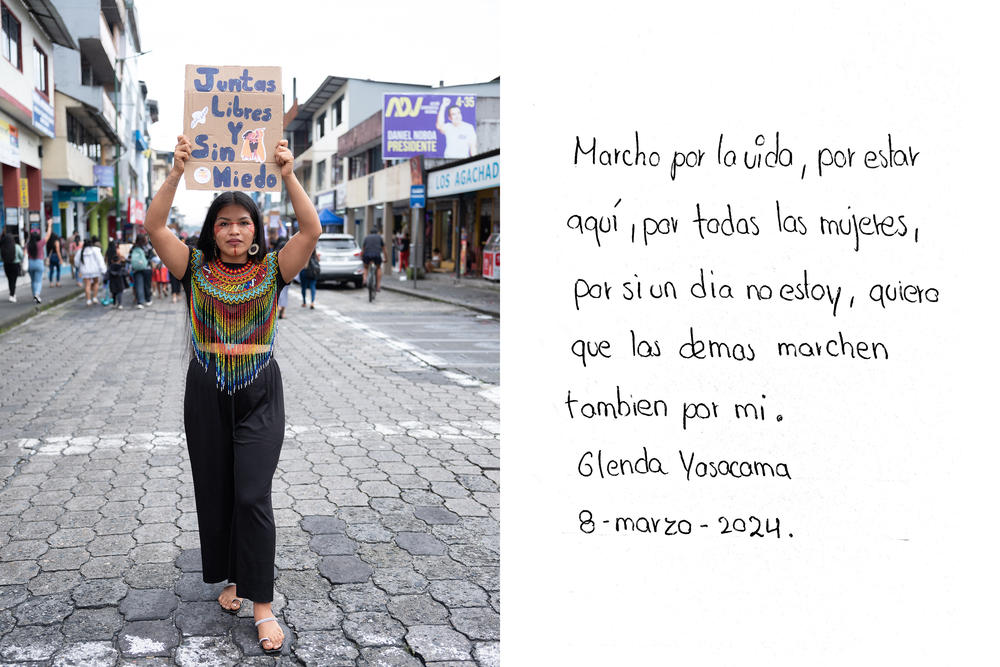 Juntas
Libres
Y
Sin
Miedo
ADN
4-35
DANIEL NOBOA
PRESIDENTE
LOS AGACHAD
Marcho por la vida, por estar
aquí, por todas las mujeres,
por si un dia no estoy, quiero
que las demas marchen
tambien por mi.
Glenda Yasacama
8-marzo-2024.